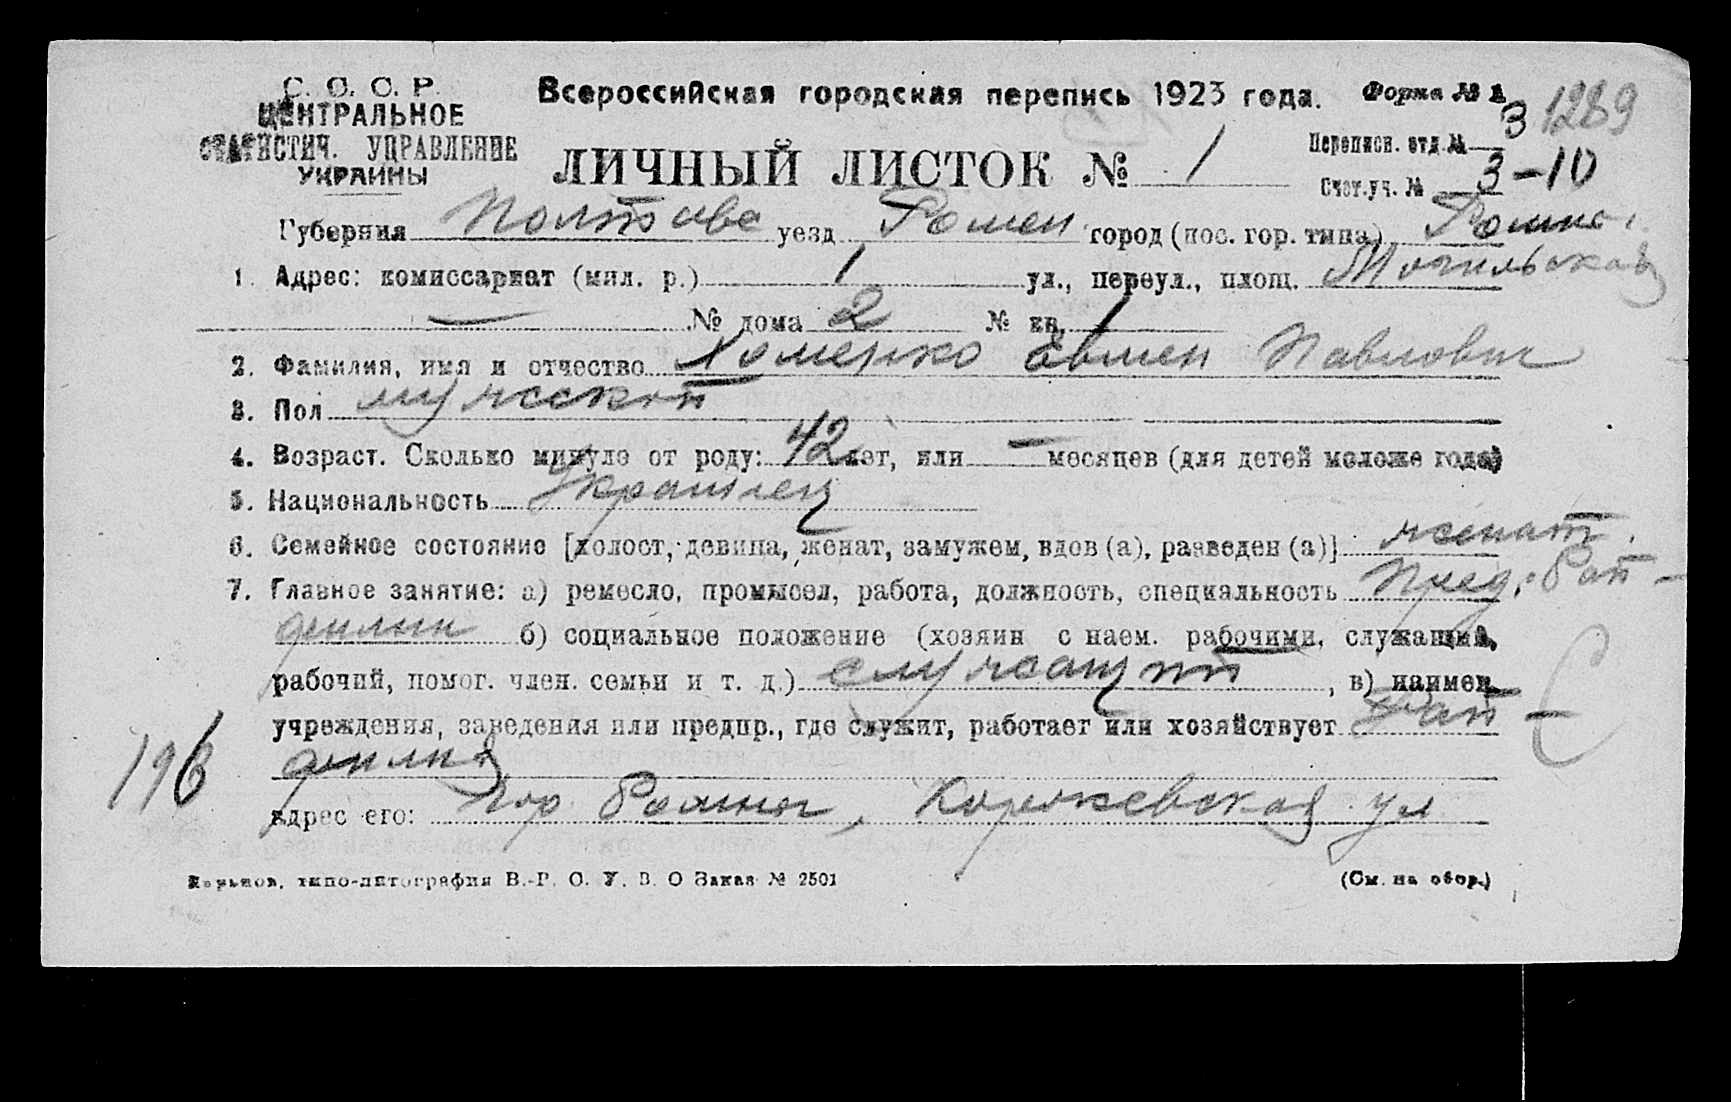 С. С. С. Р.
ЦЕНТРАЛЬНОЕ
СТАТИСТИЧ. УПРАВЛЕНИЕ
УКРАИНЫ
Всероссийская городская перепись 1923 года.
Форма № 1
1289
ЛИЧНЫЙ ЛИСТОК № 1
Переписн. отд. № 3
Счет. уч. № 3-10
Губерния Полтавс уезд Ромен город (пос. гор. типа) Ромны
1. Адрес: комиссариат (мил. р.) 1 ул., переул., площ.
— № дома 2 № кв. 1
2. Фамилия, имя и отчество Хоменко Евмен Павлович
3. Пол мужской
4. Возраст. Сколько минуло от роду: 42 лет, или — месяцев (для детей моложе года)
5. Национальность Украинец
6. Семейное состояние [холост, девица, женат, замужем, вдов (а), разведен (а)] женат.
7. Главное занятие: а) ремесло, промысел, работа, должность, специальность Пред. Рай-
филии б) социальное положение (хозяин с наем. рабочими, служащий,
рабочий, помог. член. семьи и т. д.) служащий, в) наимен.
учреждения, заведения или предпр., где служит, работает или хозяйствует Рай-
филия
196
адрес его: гор. Ромны, ул
Харьков, типо-литография В.-Р. С. У. В. О Заказ № 2501
(См. на обор.)